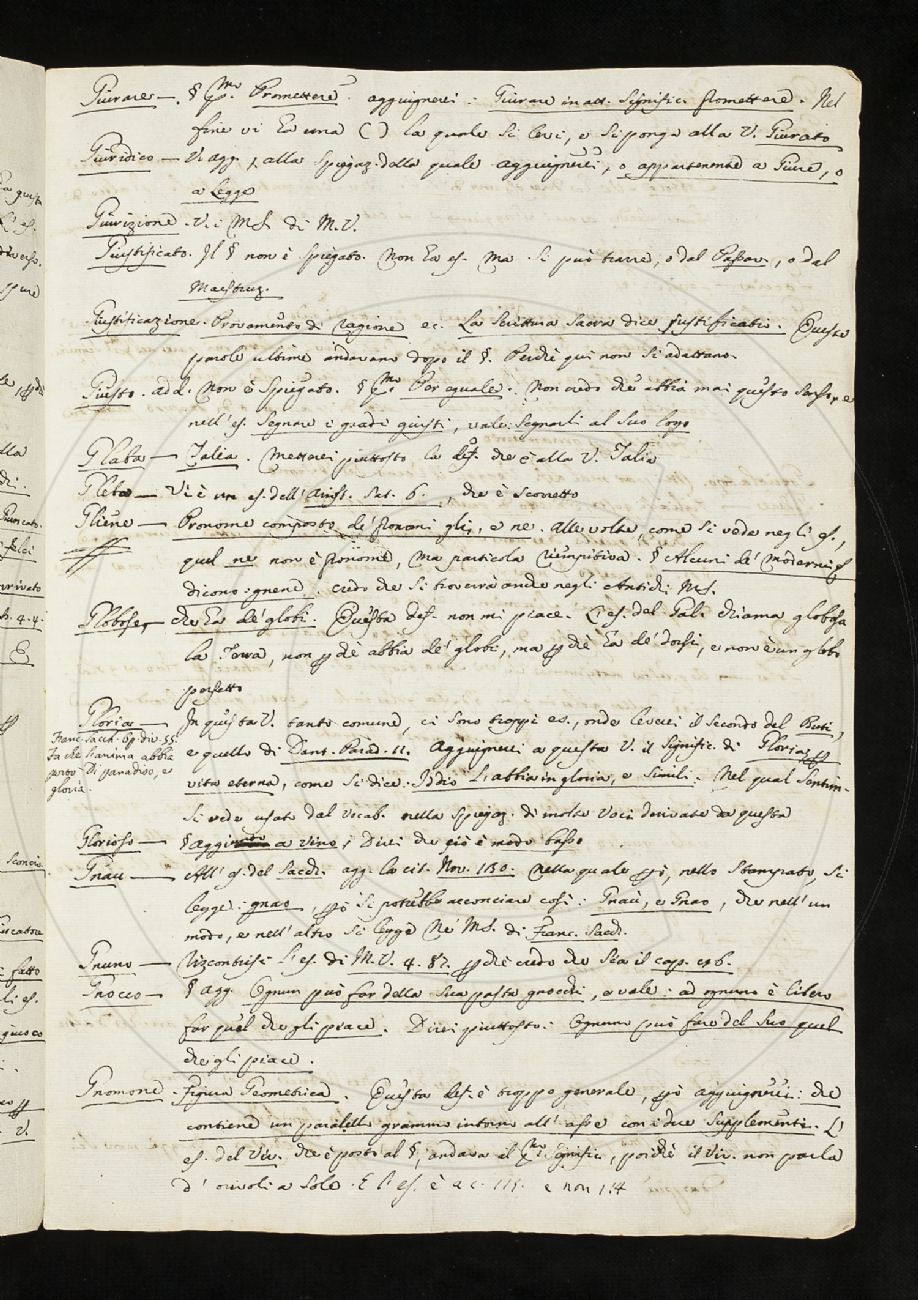 Giurare — . § Pmo. Promettere. aggiugnerei : Giurare in att. signific. promettere. Nel
fine vi ha una ( ) la quale si levi, e si ponga alla V. Giurato
Giuridico — V. agg. , alla spiegaz. della quale aggiugnerei, o appartenente a Giure, o
a Legge
Giurizione . V. i MS. di M.V.
Giustificato. Il § non è spiegato. Non ha es. Ma si può trarre, o dal Passav. , o dal
Maestruz.
Giustificazione. Provamento di ragione ec. La Scrittura Sacra dice justificatio. Queste
parole ultime andavano dopo il §. Perchè qui non si adattano.
Giusto. add. Non è spiegato. § Pmo Per eguale. Non credo che abbia mai questo senso, e
nell' es. Segnare i gradi giusti, vale: segnarli al suo logo
Glaba — Talia. Metterei piuttosto la def. che è alla V. Talia
Gleba — Vi è un es. dell' Ariost. Sat. 6. , che è scorretto
Gliene — Pronome composto de' pronomi gli, e ne. Alle volte, come si vede negli es.,
quel ne non è pronome, ma particola riempitiva. § Alcuni de' moderni
dicono : gnene. credo che si troverà anche negli Antichi MS.
Globoso, che ha de' globi. Questa def. non mi piace. L' es. del Gal. chiama globosa
la Terra, non pchè abbia de' globi, ma pchè ha de' dossi, e non è un globo
perfetto
Gloria — In questa V. tanto comune, ci sono troppi es., onde leverei il secondo del Buti,
Franc. Sacch. Op. div. 55.
Fa che l'anima abbia
porto Di paradiso, e
gloria.
e quello di Dant. Parad. 11. Aggiugnerei a questa V. il signific. di Gloria pp
vita eterna, come si dice : Iddio l' abbia in gloria, e simili. Nel qual sentim-
si vede usato dal Vocab. nella spiegaz. di molte voci derivate da questa
Glorioso — § Aggiunto a vino; Direi che ciò è modo basso
Gnau — All' es. del Sacch. agg. la cit. Nov. 130. Nella quale pò, nello Stampato, si
legge : gnao , pò si potrebbe acconciare così : Gnau, e Gnao, che nell' un
modo, e nell' altro si legge Ne' MS. di Franc. Sacch.
Gnuno — Riscontrisi l' es. di M.V. 4. 87. pchè credo che sia il cap. 96.
Gnocco — § agg. Ognun può far della sua pasta gnocchi, e vale : ad ognuno è libero
far quel che gli piace. Direi piuttosto : Ognuno può fare del suo quel
che gli piace.
Gnomone . Figura Geometrica. Questa def. è troppo generale, pò aggiugnerei : che
contiene un paralello grammo intorno all' asse con i due supplementi. L'
es. del Viv. che è posto al §, andava al Pmo. signific., poichè il Viv. non parla
d' orivoli a sole. E l' es. è a c. 111. e non 114